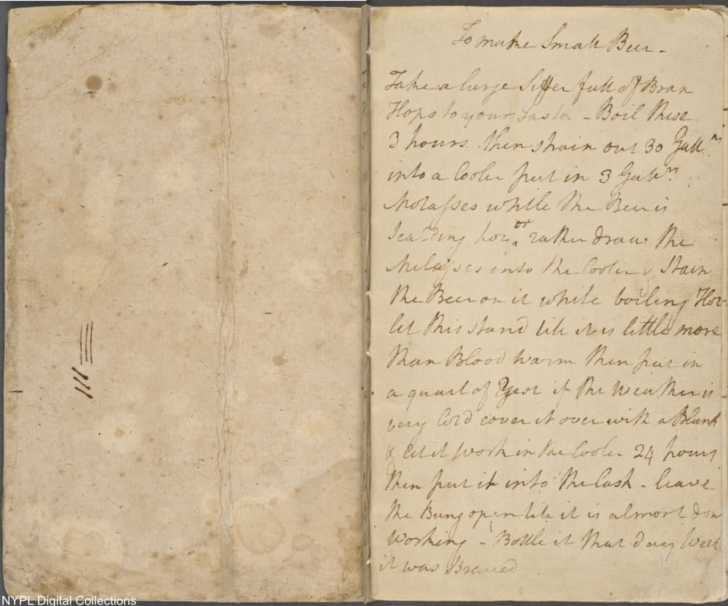 To make Small Beer -
Take a large Siffer full of Bran
Hops to your Taste - Boil these
3 hours. then strain out 30 Gall.ⁿˢ
into a Cooler put in 3 Gallⁿˢ
Molasses while the Beer is
Scalding hot or rather draw the
Molasses into the Cooler & Stain
the Beer on it while boiling Hot
let this stand till it is little more
than Blood warm then put in
a quart of Yest if the Weather is
very Cold cover it over with a Blank
& let it work in the Cooler 24 hours
then put it into the Cask - leave
the Bung open till it is almost don
working - Bottle it that day Week
it was Brewed
NYPL Digital Collections